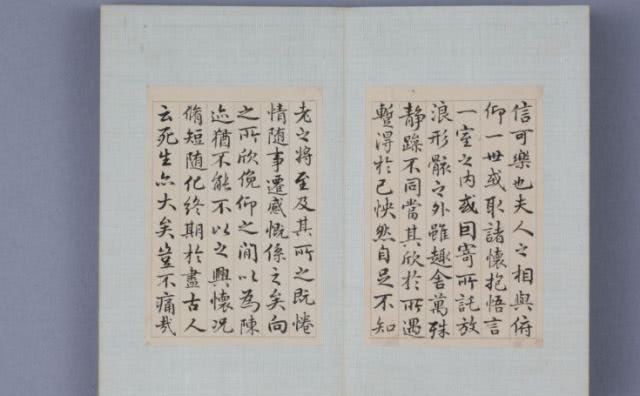 信可樂也夫人之相與俯
仰一世或取諸懷抱悟言
一室之內或因寄所託放
浪形骸之外雖趣舍萬殊
静躁不同當其欣於所遇
暫得於己怏然自足不知
老之將至及其所之既惓
情随事遷感慨係之矣向
之所欣俛仰之閒以為陳
迹猶不能不以之興懷况
脩短随化終期於盡古人
云死生亦大矣豈不痛哉